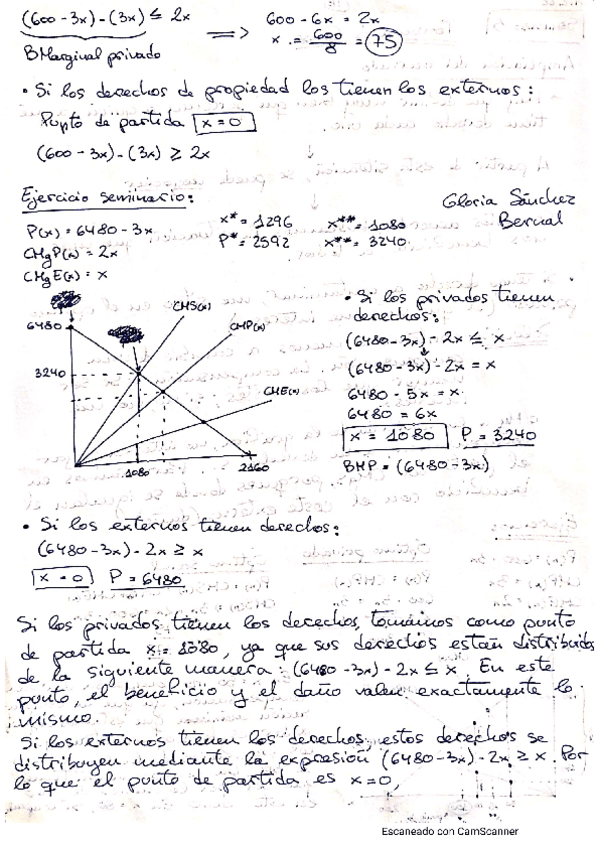 (600-3x)-(3x) ≤ 2x
BMarginal privado
=>
600 - 6x = 2x
x = 600/8 = 75
• Si los derechos de propiedad los tienen los externos:
Punto de partida x=0
(600-3x)-(3x) ≥ 2x
Ejercicio seminario:
Gloria Sánchez
Bernal
P(x) = 6480 - 3x
CMgP(x) = 2x
CMgE(x) = x
x* = 1296
P* = 2592
x** = 1080
x** = 3240
6480
3240
CMS(x)
CMP(x)
CME(x)
1080
2160
• Si los privados tienen
derechos:
(6480-3x) - 2x ≤ x
(6480-3x) - 2x = x
6480 - 5x = x
6480 = 6x
x = 1080 P = 3240
BMP = (6480-3x)
• Si los externos tienen derechos:
(6480-3x) - 2x ≥ x
x = 0 P = 6480
Si los privados tienen los derechos, tomamos como punto
de partida x = 1080, ya que sus derechos están distribuidos
de la siguiente manera: (6480-3x) - 2x ≤ x. En este
punto, el beneficio y el daño valen exactamente lo
mismo.
Si los externos tienen los derechos, estos derechos se
distribuyen mediante la expresión (6480-3x) - 2x ≥ x. Por
lo que el punto de partida es x=0,
Escaneado con CamScanner